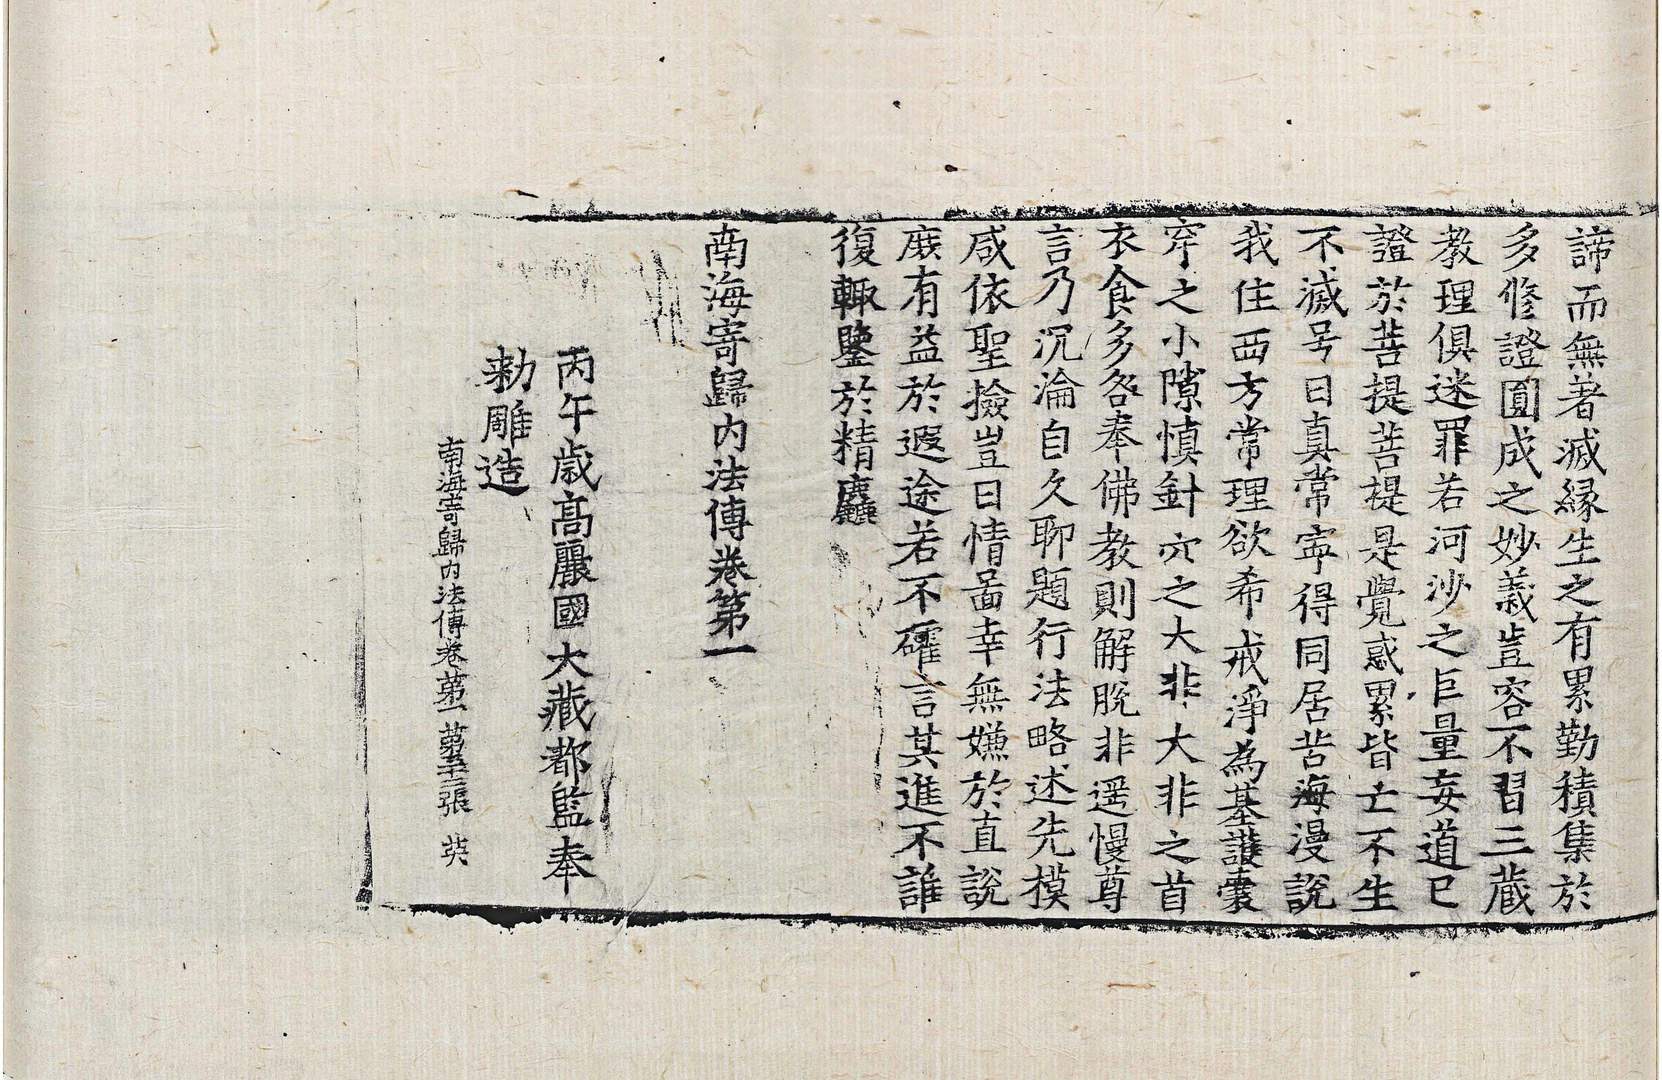 諦而無著滅緣生之有累勤積集於
多修證圓成之妙義豈容不習三藏
教理俱迷罪若河沙之巨量妄道已
證於菩提菩提是覺惑累皆亡不生
不滅号曰真常寧得同居苦海漫說
我住西方常理欲希戒淨為基護囊
穿之小隙慎針穴之大非大非之首
衣食多咎奉佛教則解脫非遥慢尊
言乃沉淪自久聊題行法略述先模
咸依聖撿豈曰情啚幸無嫌於直說
庶有益於遐途若不確言其進不誰
復輙鑒於精麁
南海寄歸內法傳卷第一
丙午歲高麗國大藏都監奉
勑雕造
南海寄歸內法傳卷第一 張 英